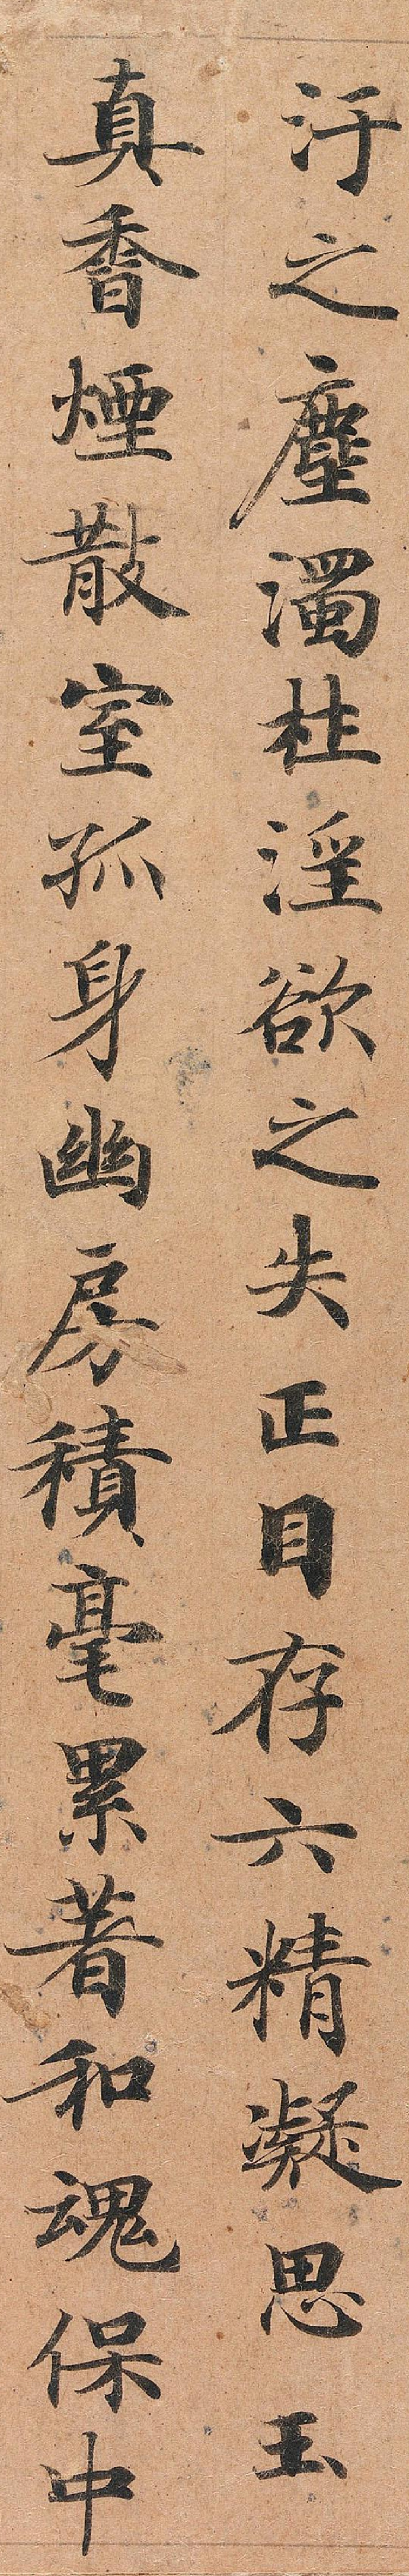 汙之塵濁杜淫欲之失正目存六精凝思玉
真香煙散室孤身幽房積毫累著和魂保中